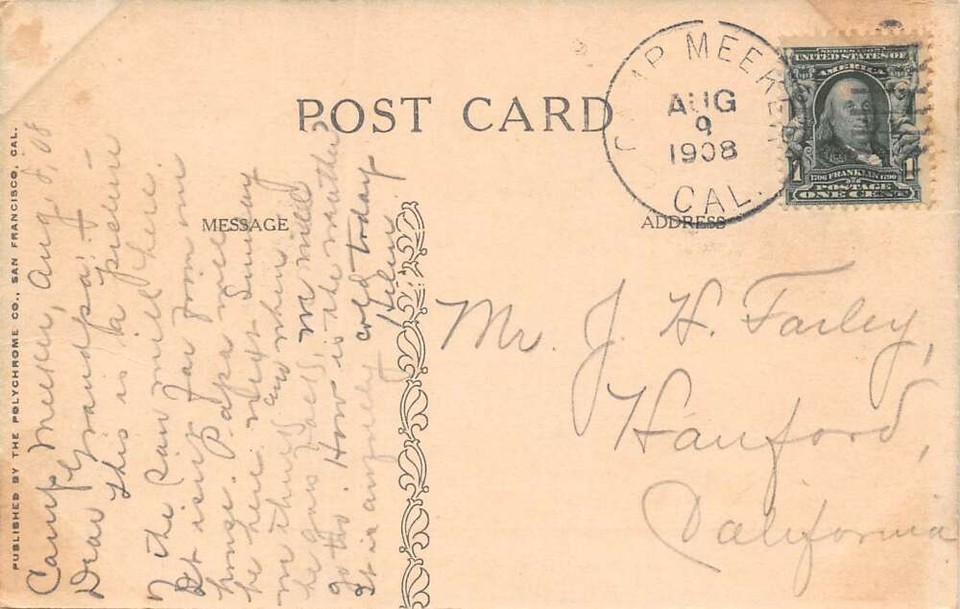 POST CARD
MESSAGE
ADDRESS
PUBLISHED BY THE POLYCHROME CO., SAN FRANCISCO, CAL.
CAMP MEEKER
AUG
9
1908
CAL.
SERIES 1902
UNITED STATES OF
AMERICA
1706 FRANKLIN 1790
1 1
POSTAGE
ONE CENT
Camp Meeker, Aug 8, '08
Dear Grandpa:-
This is a picture
of the saw mill here.
It isn't far from our
house. Papa will
be here next Sunday
and when
he goes back, we will
go to. How is the weather
It is cold today
Helen
Mr. J. H. Farley,
Hanford,
California